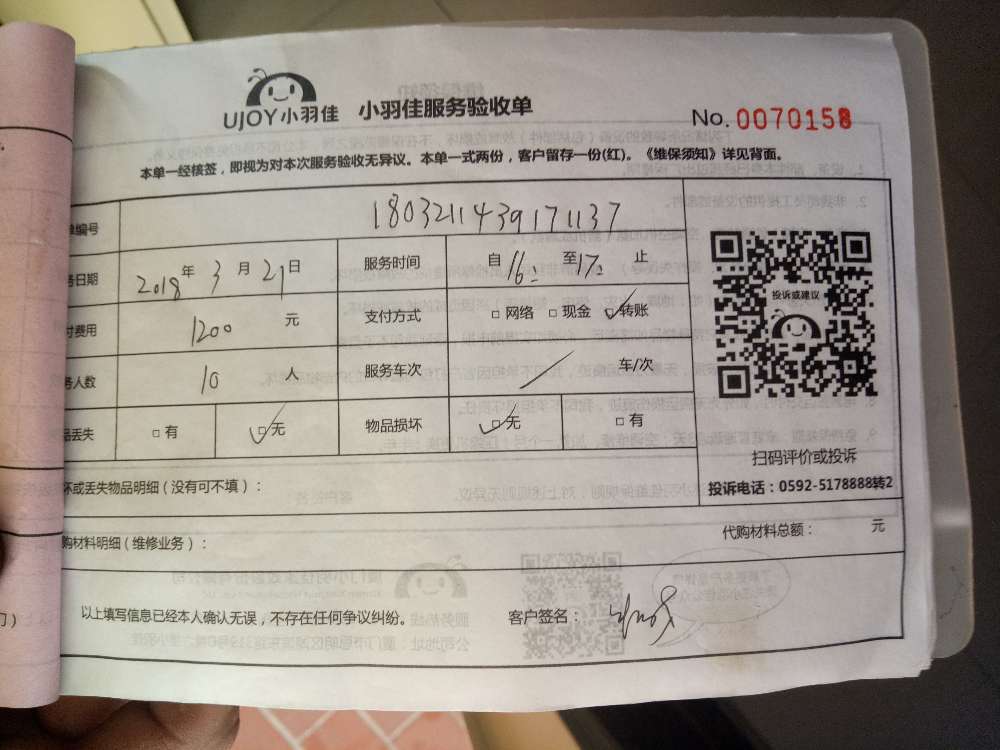 UJOY小羽佳 小羽佳服务验收单 No.0070158
本单一经核签，即视为对本次服务验收无异议。本单一式两份，客户留存一份(红)。《维保须知》详见背面。
单编号 1803211439171137
务日期 2018年3月21日 服务时间 自16: 至17: 止
付费用 1200 元 支付方式 □网络 □现金 □转账
务人数 10 人 服务车次 / 车/次
品丢失 □有 □无 物品损坏 □无 □有
投诉或建议
扫码评价或投诉
投诉电话：0592-5178888转2
坏或丢失物品明细（没有可不填）：
购材料明细（维修业务）： 代购材料总额： 元
以上填写信息已经本人确认无误，不存在任何争议纠纷。 客户签名：